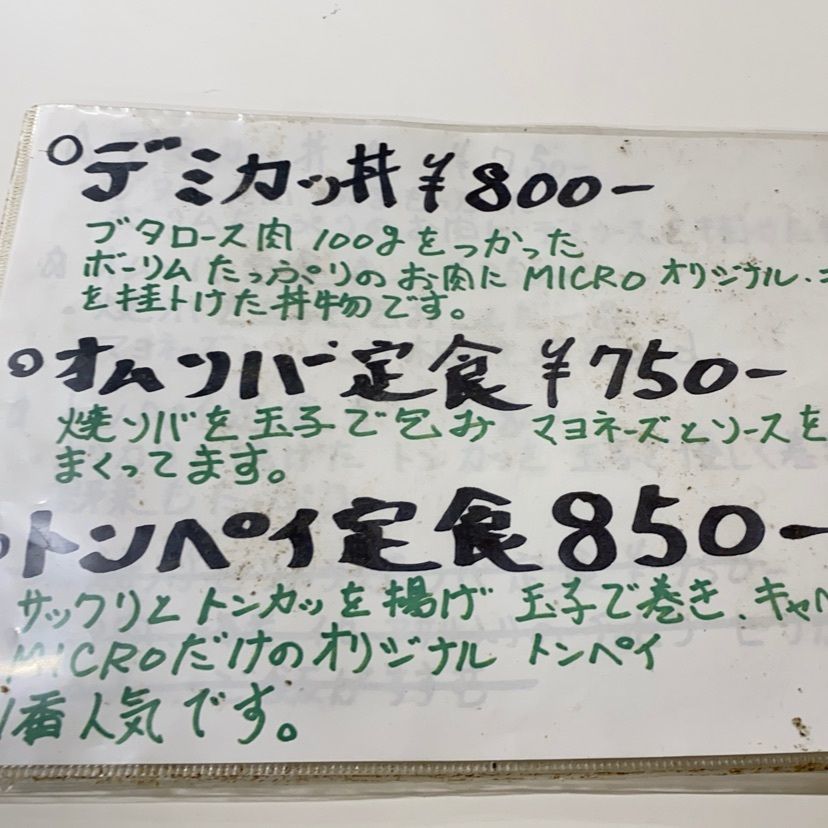 ○デミカツ丼 ¥800-
ブタロース肉 100gをつかった
ボーリムたっぷりのお肉に MICRO オリジナル.
を掛けた丼物です。
○オムソバ定食 ¥750-
焼ソバを玉子で包み マヨネーズとソースを
まくってます。
トンペイ定食 850-
サックリとトンカツを揚げ 玉子で巻き、キャベ
MICROだけのオリジナル トンペイ
1番人気です。